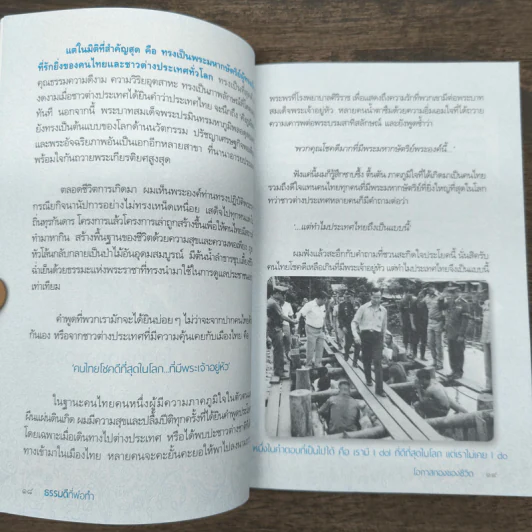 แต่ในมิติที่สำคัญสุด คือ ทรงเป็นพระมหากษัตริย์ผู้
ที่รักยิ่งของคนไทยและชาวต่างประเทศทั่วโลก ทรงเป็น
คุณธรรมความดีงาม ความวิริยอุตสาหะ ทรงเป็นภาพลักษณ์
งดงามเมื่อชาวต่างชาติได้ยินคำว่าประเทศไทย จะนึกถึง
ทันที นอกจากนี้ พระบาทสมเด็จพระปรมินทรมหาภูมิพล
ยังทรงเป็นต้นแบบของโลกด้านนวัตกรรม ปรัชญาเศรษฐกิจ
และพระอัจฉริยภาพอันเป็นเอกอีกหลายสาขา ที่นานาอารยประเทศ
พร้อมใจกันถวายพระเกียรติยศสูงสุด
ตลอดชีวิตการเกิดมา ผมเห็นพระองค์ท่านทรงปฏิบัติพระ
กรณียกิจนานัปการอย่างไม่ทรงเหนื่อย เสด็จไปทุกหน
ถิ่นทุรกันดาร โครงการแล้วโครงการเล่าถูกสร้างขึ้นเพื่อให้คนไทยมี
ทำมาหากิน สร้างพื้นฐานของชีวิตด้วยความสุขและความพอเพียง
หัวโล้นกลับกลายเป็นป่าไม้อันอุดมสมบูรณ์ มีต้นน้ำลำธารชุบเลี้ยง
ฉ่ำเย็นด้วยธรรมะแห่งพระราชาที่ทรงนำมาใช้ในการดูแลประชาชน
เท่าเทียม
คำพูดที่พวกเรามักจะได้ยินบ่อยๆ ไม่ว่าจะจากปากคนไทย
กันเอง หรือจากชาวต่างประเทศที่มีความคุ้นเคยกับเมืองไทย คือ
'คนไทยโชคดีที่สุดในโลก...ที่มีพระเจ้าอยู่หัว'
ในฐานะคนไทยคนหนึ่งผู้มีความภาคภูมิใจในตัว
ผืนแผ่นดินเกิด ผมมีความสุขและปลื้มปีติทุกครั้งที่ได้ยินคำพูด
โดยเฉพาะเมื่อเดินทางไปต่างประเทศ หรือได้พบปะชาวต่างชาติที่
ทางเข้ามาในเมืองไทย หลายคนจะคะยั้นคะยอให้พาไปลงนาม
๑๘ ธรรมดีที่พ่อทำ
พระพรที่โรงพยาบาลศิริราช เพื่อแสดงถึงความรักที่พวกเขามีต่อพระบาท
สมเด็จพระเจ้าอยู่หัว หลายคนน้ำตาซึมด้วยความอิ่มเอมใจที่ได้ถวาย
ความเคารพต่อพระบรมสาทิสลักษณ์ และยังพูดซ้ำว่า
'พวกคุณโชคดีมากที่มีพระมหากษัตริย์พระองค์นี้...'
ฟังแค่นี้ผมก็รู้สึกซาบซึ้ง ตื้นตัน ภาคภูมิใจที่ได้เกิดมาเป็นคนไทย
รวมถึงดีใจแทนคนไทยทุกคนที่มีพระมหากษัตริย์ที่ยิ่งใหญ่ที่สุดในโลก
ทว่าชาวต่างประเทศหลายคนก็มีคำถามต่อว่า
'...แต่ทำไมประเทศไทยถึงเป็นแบบนี้'
ผมฟังแล้วสะอึกกับคำถามที่ชวนสะกิดใจประโยคนี้ นั่นสิครับ
คนไทยโชคดีเหลือเกินที่มีพระเจ้าอยู่หัว แต่ทำไมประเทศไทยจึงเป็นแบบนี้
หนึ่งในคำตอบที่เป็นไปได้ คือ เรามี I dol ที่ดีที่สุดในโลก แต่เราไม่เคย I do
โอกาสทองของชีวิต ๑๙